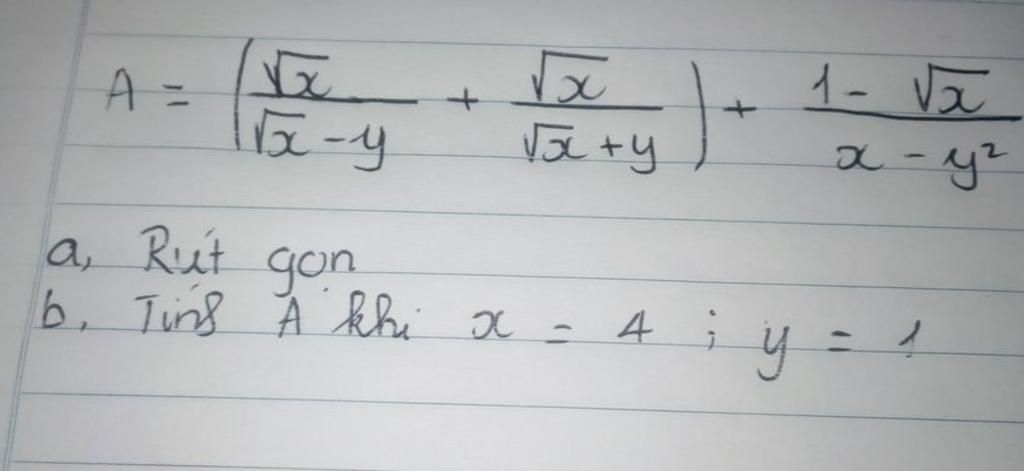 A = (√x/(√x - y) + √x/(√x + y)) + (1 - √x)/(x - y²)
a, Rút gọn
b, Tính A khi x = 4 ; y = 1